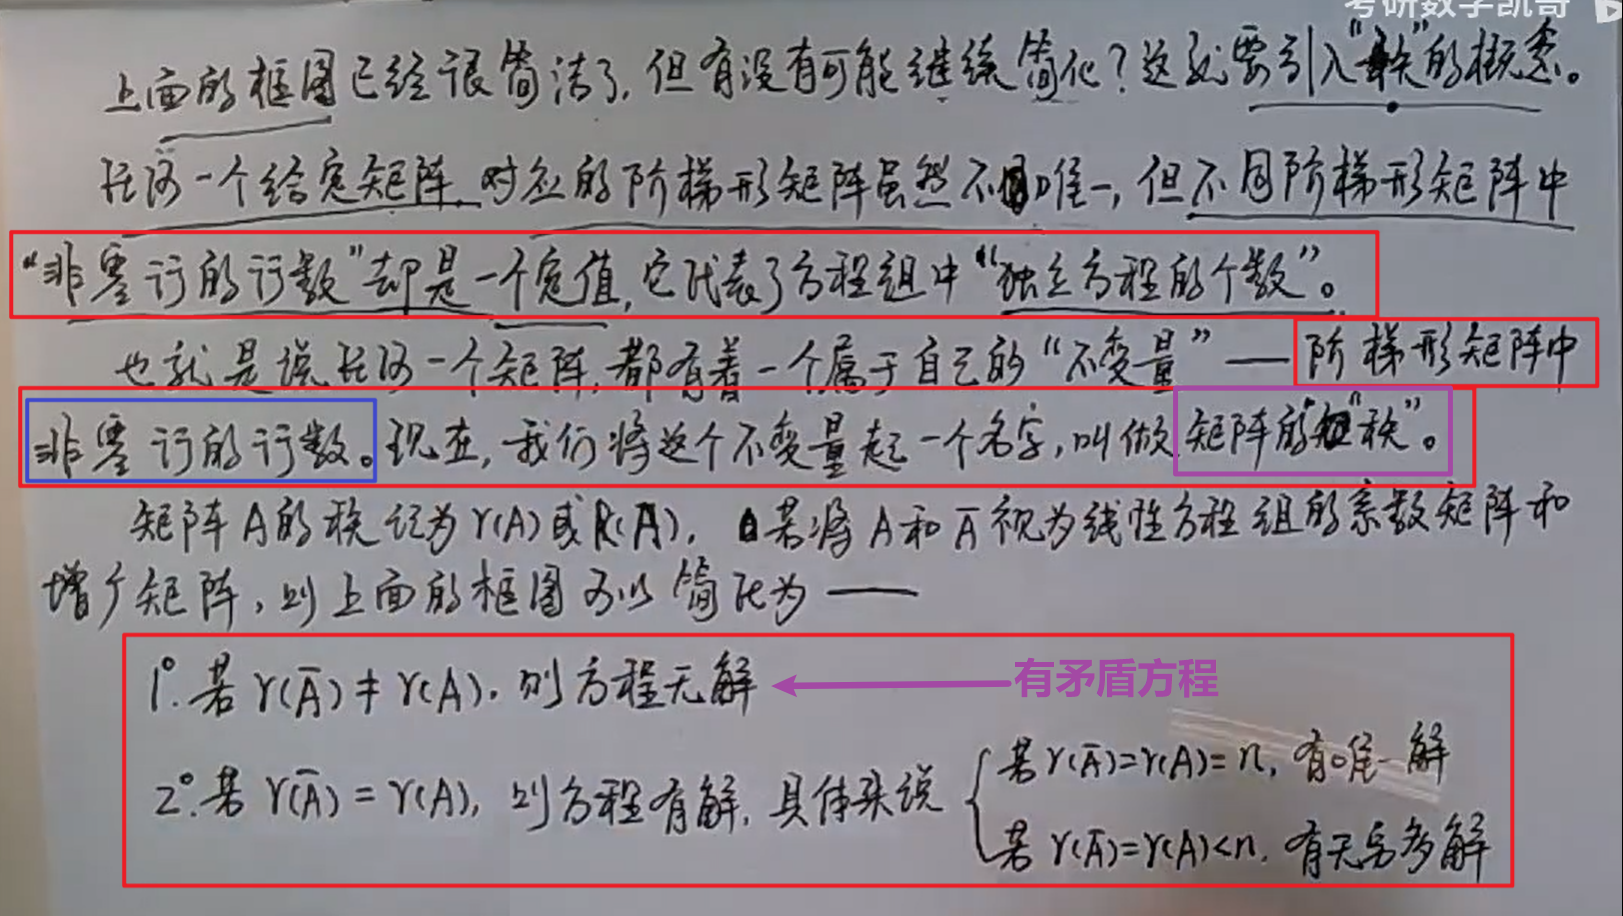 考研数学凯哥
上面的框图已经很简洁了,但有没有可能继续简化?这就要引入"秩"的概念。
任何一个给定矩阵,对应的阶梯形矩阵虽然不唯一,但不同阶梯形矩阵中
"非零行的行数"却是一个定值,它代表了方程组中"独立方程的个数"。
也就是说任何一个矩阵,都有着一个属于自己的"不变量"——阶梯形矩阵中
非零行的行数。现在,我们将这个不变量起一个名字,叫做矩阵的"秩"。
矩阵A的秩记为r(A)或R(A)。若将A和Ā视为线性方程组的系数矩阵和
增广矩阵,则上面的框图可以简化为——
1°.若r(Ā)≠r(A).则方程无解 有矛盾方程
2°.若r(Ā)=r(A),则方程有解,具体来说
若r(Ā)=r(A)=n,有唯一解
若r(Ā)=r(A)<n,有无穷多解